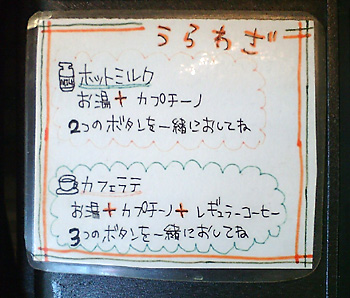 うらわざ
ホットミルク
お湯+カプチーノ
2つのボタンを一緒におしてね
カフェラテ
お湯+カプチーノ+レギュラーコーヒー
3つのボタンを一緒におしてね